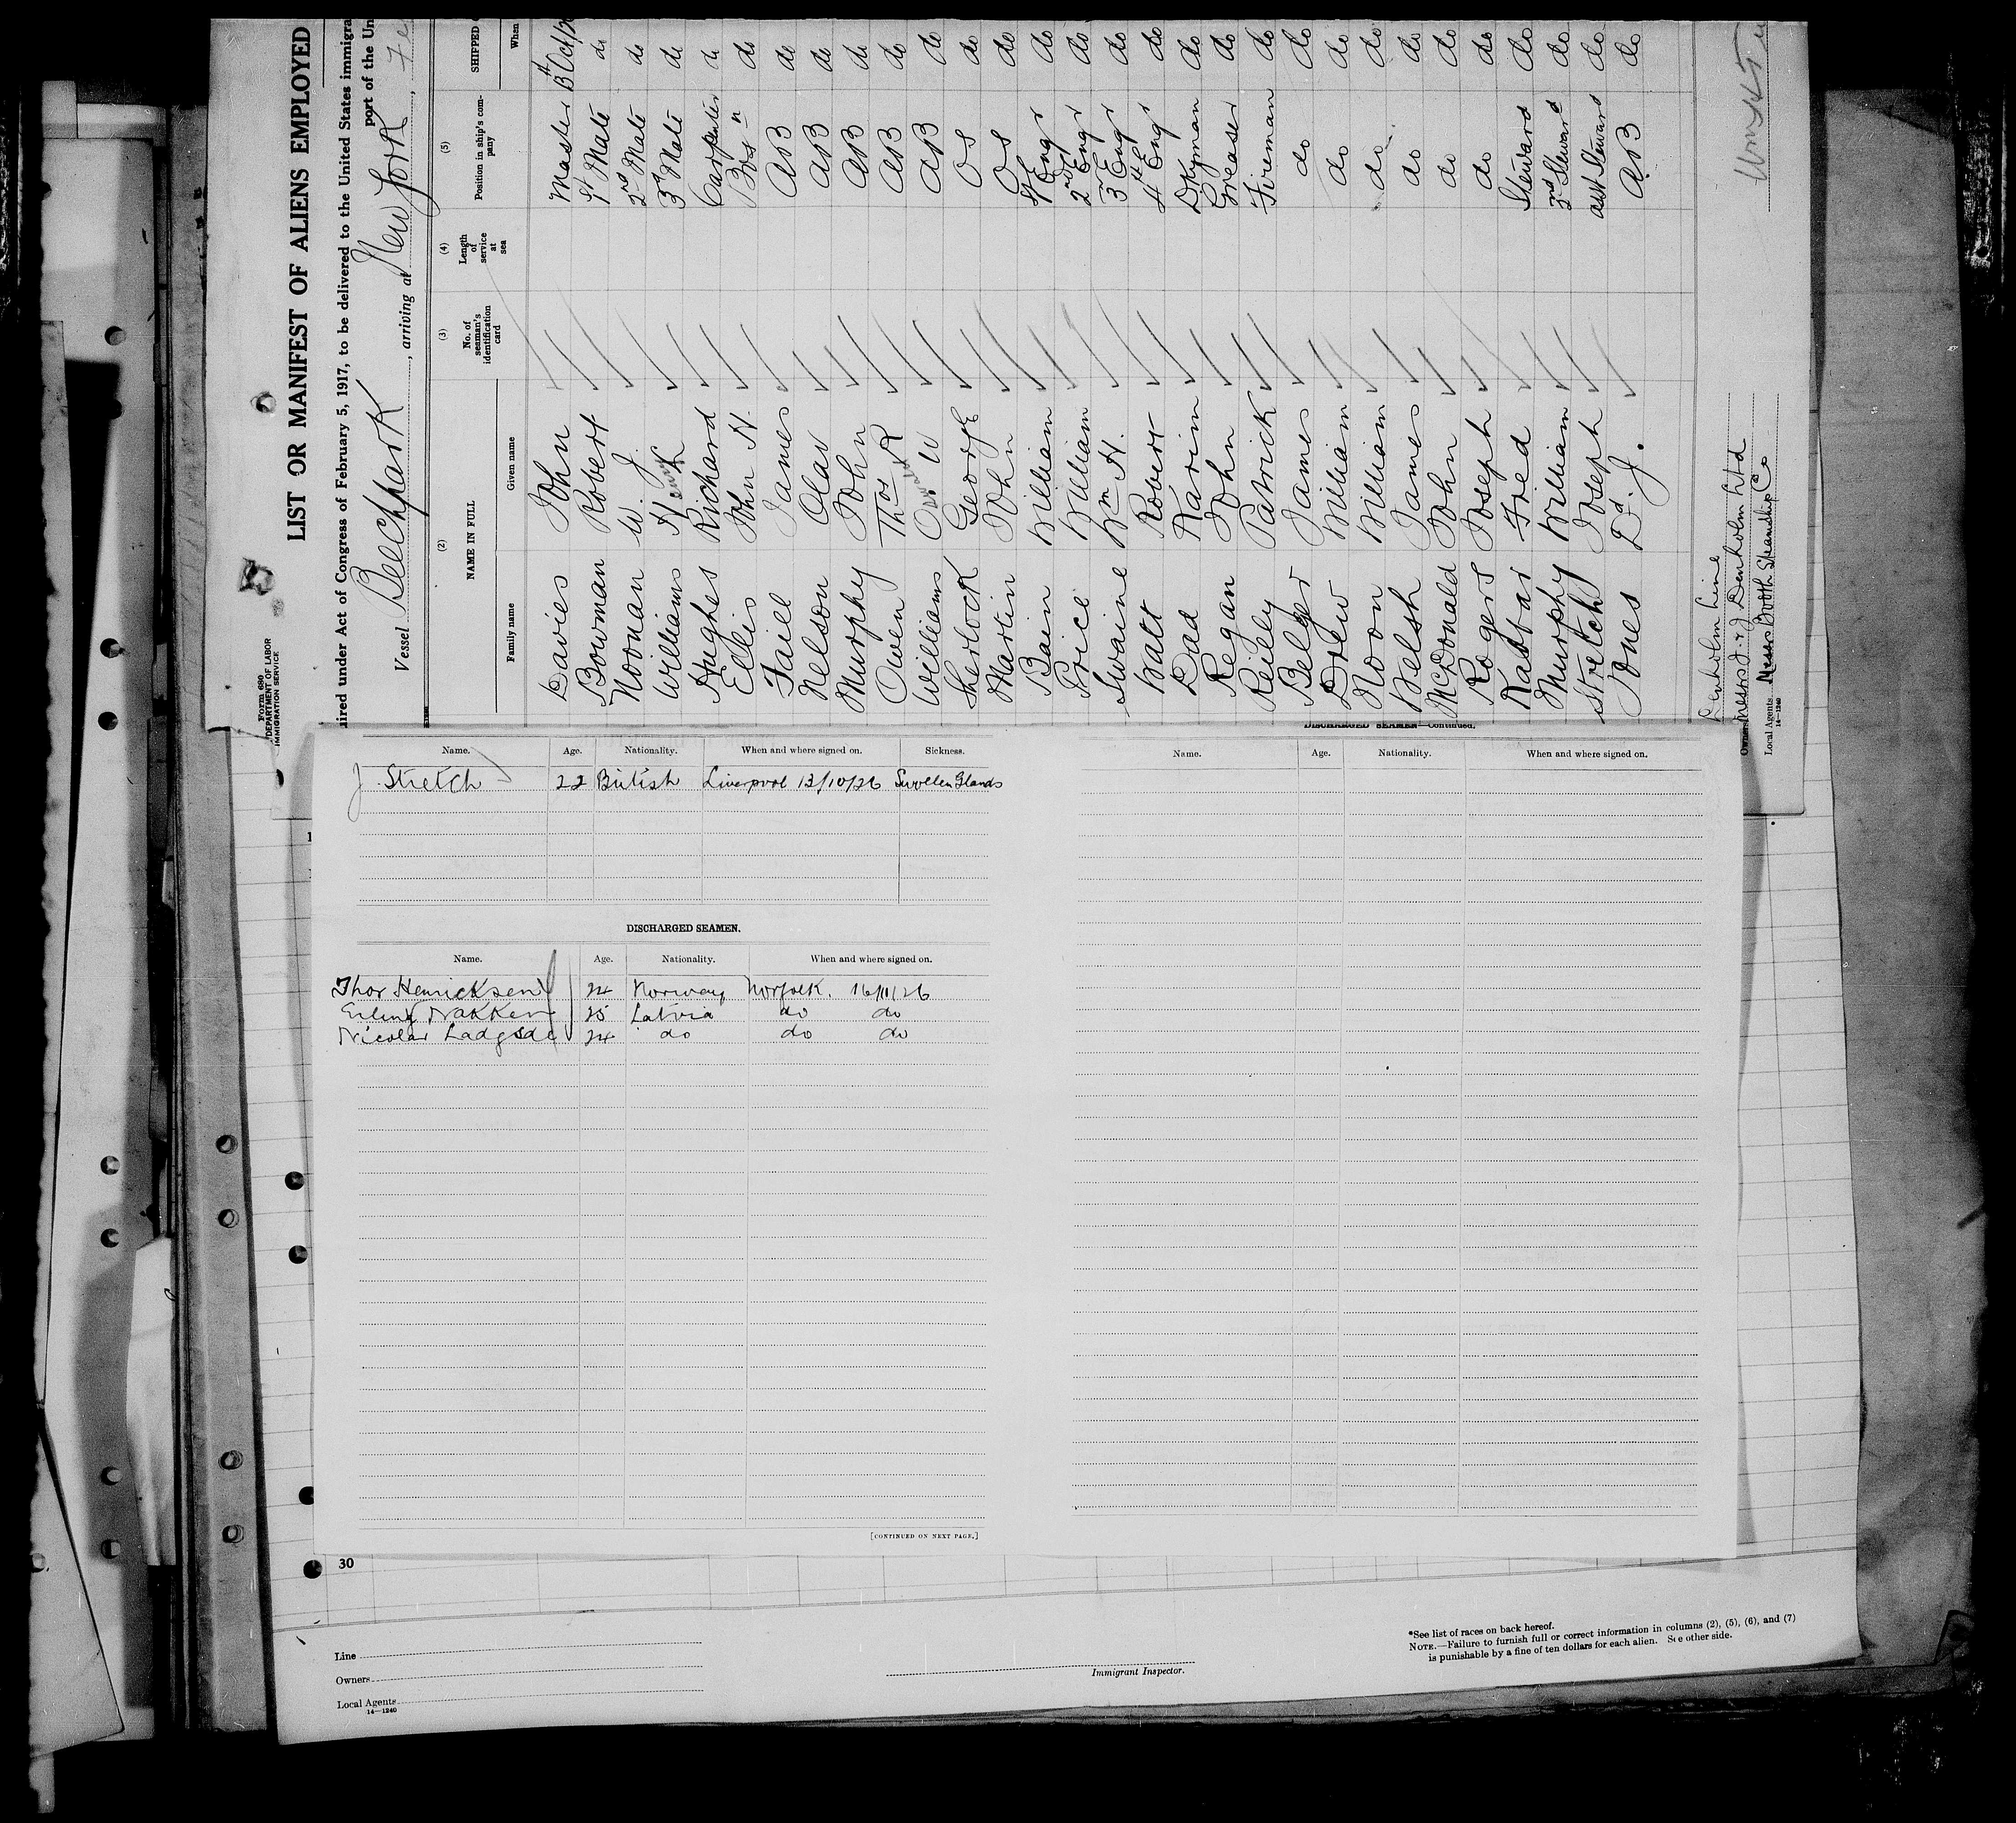 Form 680
DEPARTMENT OF LABOR
IMMIGRATION SERVICE
LIST OR MANIFEST OF ALIENS EMPLOYED
uired under Act of Congress of February 5, 1917, to be delivered to the United States immigra
Vessel Beechpark, arriving at New York, Fe
port of the Un
(2) (3) (4) (5)
NAME IN FULL No. of seaman's identification card Length of service at sea Position in ship's company SHIPPED
Family name Given name When
Davies John Master 13th Oct/
Bowman Robert 1st Mate do
Noonan W. J. 2nd Mate do
Williams Henry 3rd Mate do
Hughes Richard Carpenter do
Ellis John H. Bos n do
Faill James AB do
Nelson Olav AB do
Murphy John AB do
Owen Thos R AB do
Williams Oswald W AB do
Sherlock George OS do
Martin John OS do
Bain William 1st Engr do
Price William 2nd Engr do
Swaine Wm H. 3rd Engr do
Watt Robert 4th Engr do
Dad Karim Dkyman do
Regan John Greaser do
Reilly Patrick Fireman do
Belger James do do
Drew William do do
Noon William do do
Welsh James do do
McDonald John do do
Rogers Joseph do do
Kasbar Fred Steward do
Murphy William 2nd Steward do
Stretch Joseph asst Steward do
Jones Dd. J. AB do
Denholm Line
Owners Messrs J. & J. Denholm Ltd
Local Agents Messrs Booth Steamship Co
14—1240
Name. Age. Nationality. When and where signed on. Sickness.
J. Stretch 22 British Liverpool 13/10/26 Swollen Glands
DISCHARGED SEAMEN.
Name. Age. Nationality. When and where signed on.
Thor Henricksen 24 Norway Norfolk. 16/11/26
Erling Nakken 25 Latvia do do
Nicolai Ladgsde 24 do do do
[CONTINUED ON NEXT PAGE.]
DISCHARGED SEAMEN—Continued.
Name. Age. Nationality. When and where signed on.
30
Line
Owners
Local Agents
14—1240
Immigrant Inspector.
*See list of races on back hereof.
NOTE.—Failure to furnish full or correct information in columns (2), (5), (6), and (7)
is punishable by a fine of ten dollars for each alien. See other side.